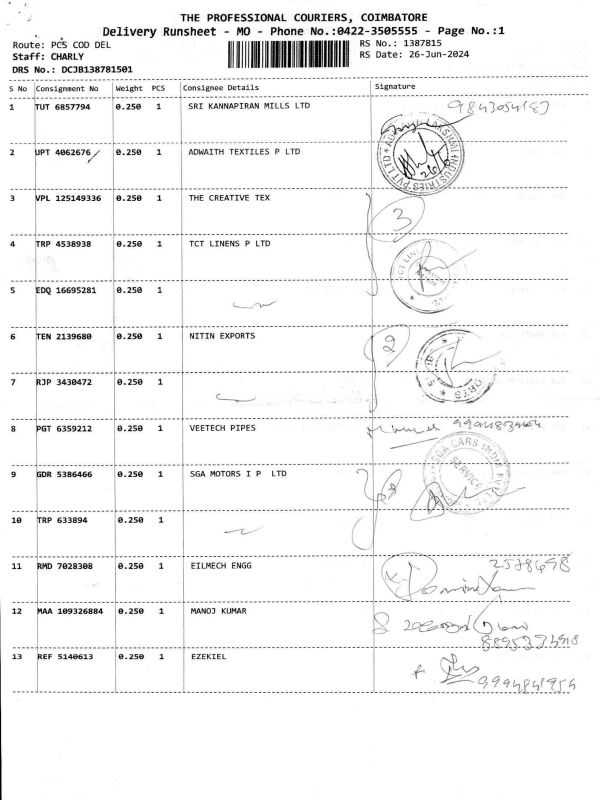 THE PROFESSIONAL COURIERS, COIMBATORE
Delivery Runsheet - MO - Phone No.:0422-3505555 - Page No.:1
Route: PCS COD DEL
Staff: CHARLY
DRS No.: DCJB138781501
RS No.: 1387815
RS Date: 26-Jun-2024
S No Consignment No Weight PCS Consignee Details Signature
1 TUT 6857794 0.250 1 SRI KANNAPIRAN MILLS LTD
2 UPT 4062676 0.250 1 ADWAITH TEXTILES P LTD
3 VPL 125149336 0.250 1 THE CREATIVE TEX
3
4 TRP 4538938 0.250 1 TCT LINENS P LTD
5 EDQ 16695281 0.250 1
6 TEN 2139680 0.250 1 NITIN EXPORTS
2
7 RJP 3430472 0.250 1
8 PGT 6359212 0.250 1 VEETECH PIPES
9 GDR 5386466 0.250 1 SGA MOTORS I P LTD
SGA CARS INDIA
SERVICE
10 TRP 633894 0.250 1
11 RMD 7028308 0.250 1 EILMECH ENGG
2578698
12 MAA 109326884 0.250 1 MANOJ KUMAR
13 REF 5140613 0.250 1 EZEKIEL
9994841954